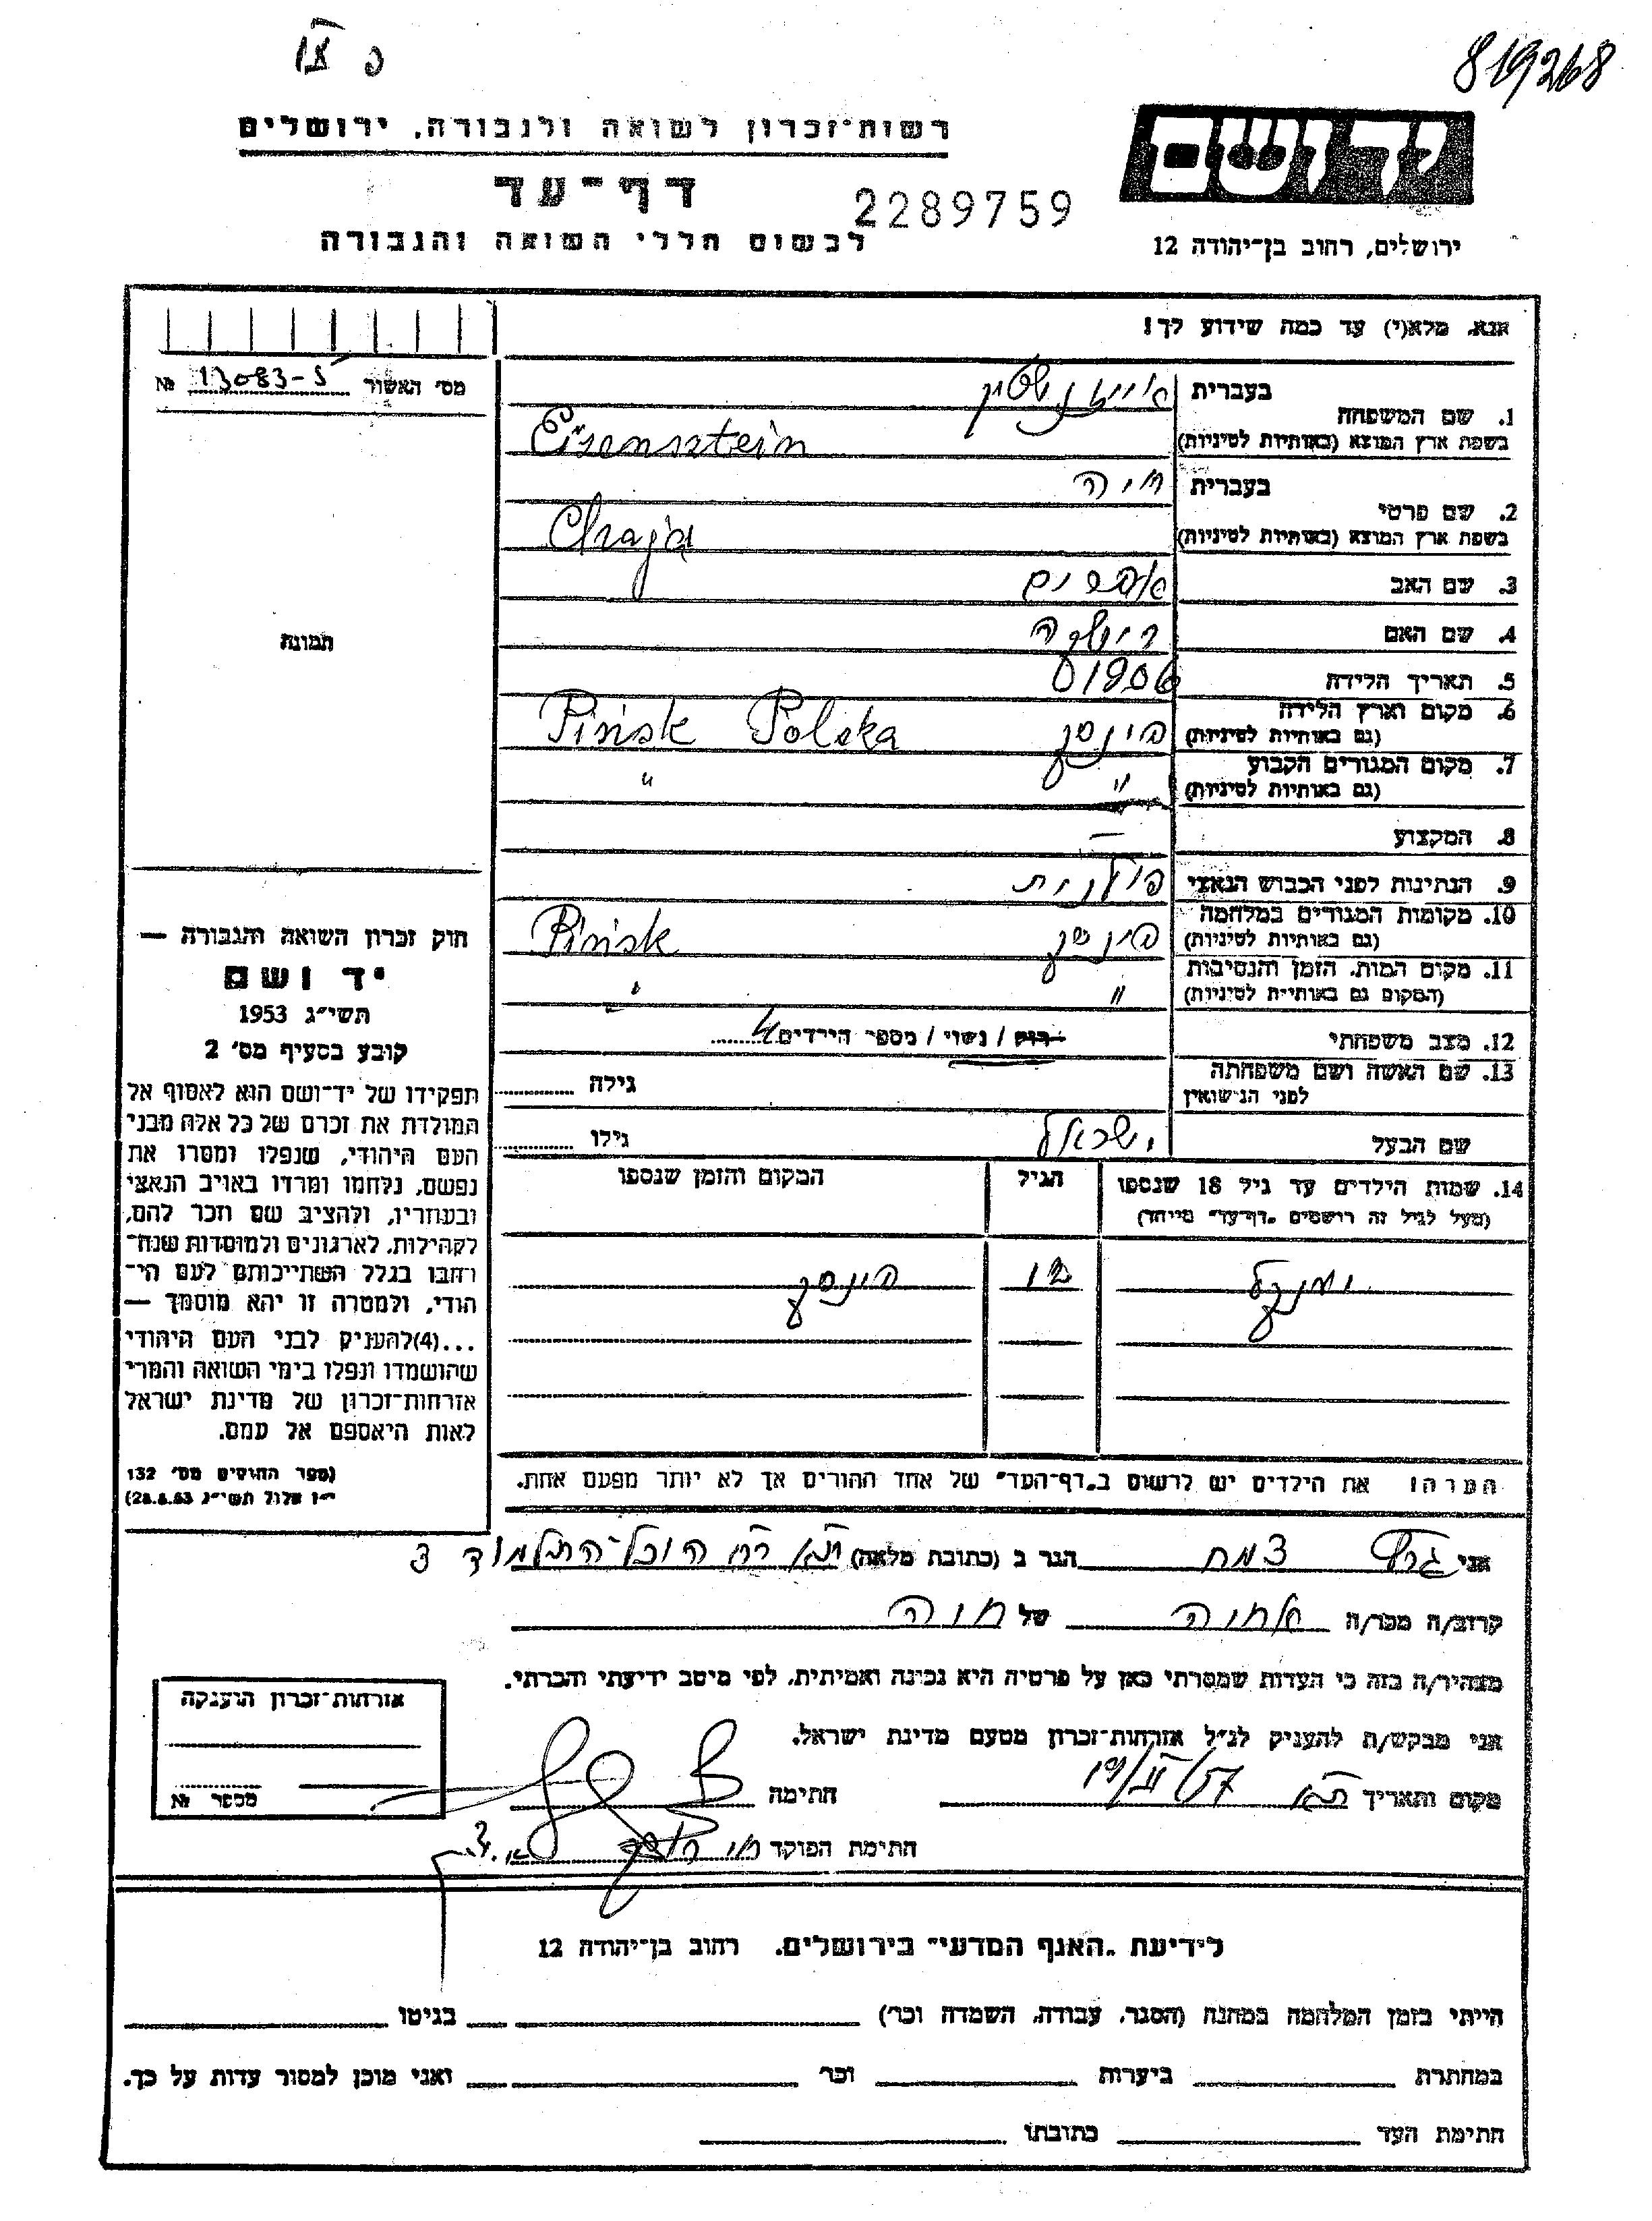 819268
רשות-זכרון לשואה ולגבורה, ירושלים
יד ושם
דף-עד
2289759
לרשום חללי השואה והגבורה
ירושלים, רחוב בן-יהודה 12
אנא, מלא(י) עד כמה שידוע לך!
מס' האשור 13083-5 №
בעברית אייזנשטיין
1. שם המשפחה
בשפת ארץ המוצא (באותיות לטיניות) Eisensztein
בעברית חיה
2. שם פרטי
בשפת ארץ המוצא (באותיות לטיניות) Chaja
3. שם האב אפרים
4. שם האם
תמונה
5. תאריך הלידה 1906
6. מקום וארץ הלידה
(גם באותיות לטיניות) פינסק Pińsk Polska
7. מקום המגורים הקבוע
(גם באותיות לטיניות) " "
8. המקצוע —
9. הנתינות לפני הכבוש הנאצי פולנית
10. מקומות המגורים במלחמה
(גם באותיות לטיניות) פינסק Pińsk
11. מקום המות, הזמן והנסיבות
(המקום גם באותיות לטיניות) " "
12. מצב משפחתי רווק / נשוי / מספר הילדים
13. שם האשה ושם משפחתה
לפני הנישואין גילה
שם הבעל ישראל גילו
14. שמות הילדים עד גיל 18 שנספו הגיל המקום והזמן שנספו
(מעל לגיל זה רושמים "דף-עד" מיוחד)
יענקל 12 פינסק
הערה: את הילדים יש לרשום ב"דף-העד" של אחד ההורים אך לא יותר מפעם אחת.
חוק זכרון השואה והגבורה —
יד ושם
תשי"ג 1953
קובע בסעיף מס' 2
תפקידו של יד-ושם הוא לאסוף אל
המולדת את זכרם של כל אלה מבני
העם היהודי, שנפלו ומסרו את
נפשם, נלחמו ומרדו באויב הנאצי
ובעוזריו, ולהציב שם וזכר להם,
לקהילות, לארגונים ולמוסדות שנח-
רחבו בגלל השתייכותם לעם הי-
הודי, ולמטרה זו יהא מוסמך —
...(4)להעניק לבני העם היהודי
שהושמדו ונפלו בימי השואה והמרי
אזרחות-זכרון של מדינת ישראל
לאות היאספם אל עמם.
(ספר החוקים מס' 132
י"ז אלול תשי"ג 28.8.53)
אני צמח הגר ב (כתובת מלאה) ת"א רח היכל-התלמוד 3
קרוב/ה מכר/ה אחיה של חיה
מצהיר/ה בזה כי העדות שמסרתי כאן על פרטיה היא נכונה ואמיתית, לפי מיטב ידיעתי והכרתי.
אני מבקש/ת להעניק לנ"ל אזרחות-זכרון מטעם מדינת ישראל.
מקום ותאריך ת"א 19/II/57 חתימה
חתימת הפוקד
אזרחות-זכרון הוענקה
מספר №
לידיעת "האגף המדעי" בירושלים, רחוב בן-יהודה 12
הייתי בזמן המלחמה במחנה (הסגר, עבודה, השמדה וכו') בגיטו
במחתרת ביערות וכו' ואני מוכן למסור עדות על כך.
חתימת העד כתובתו